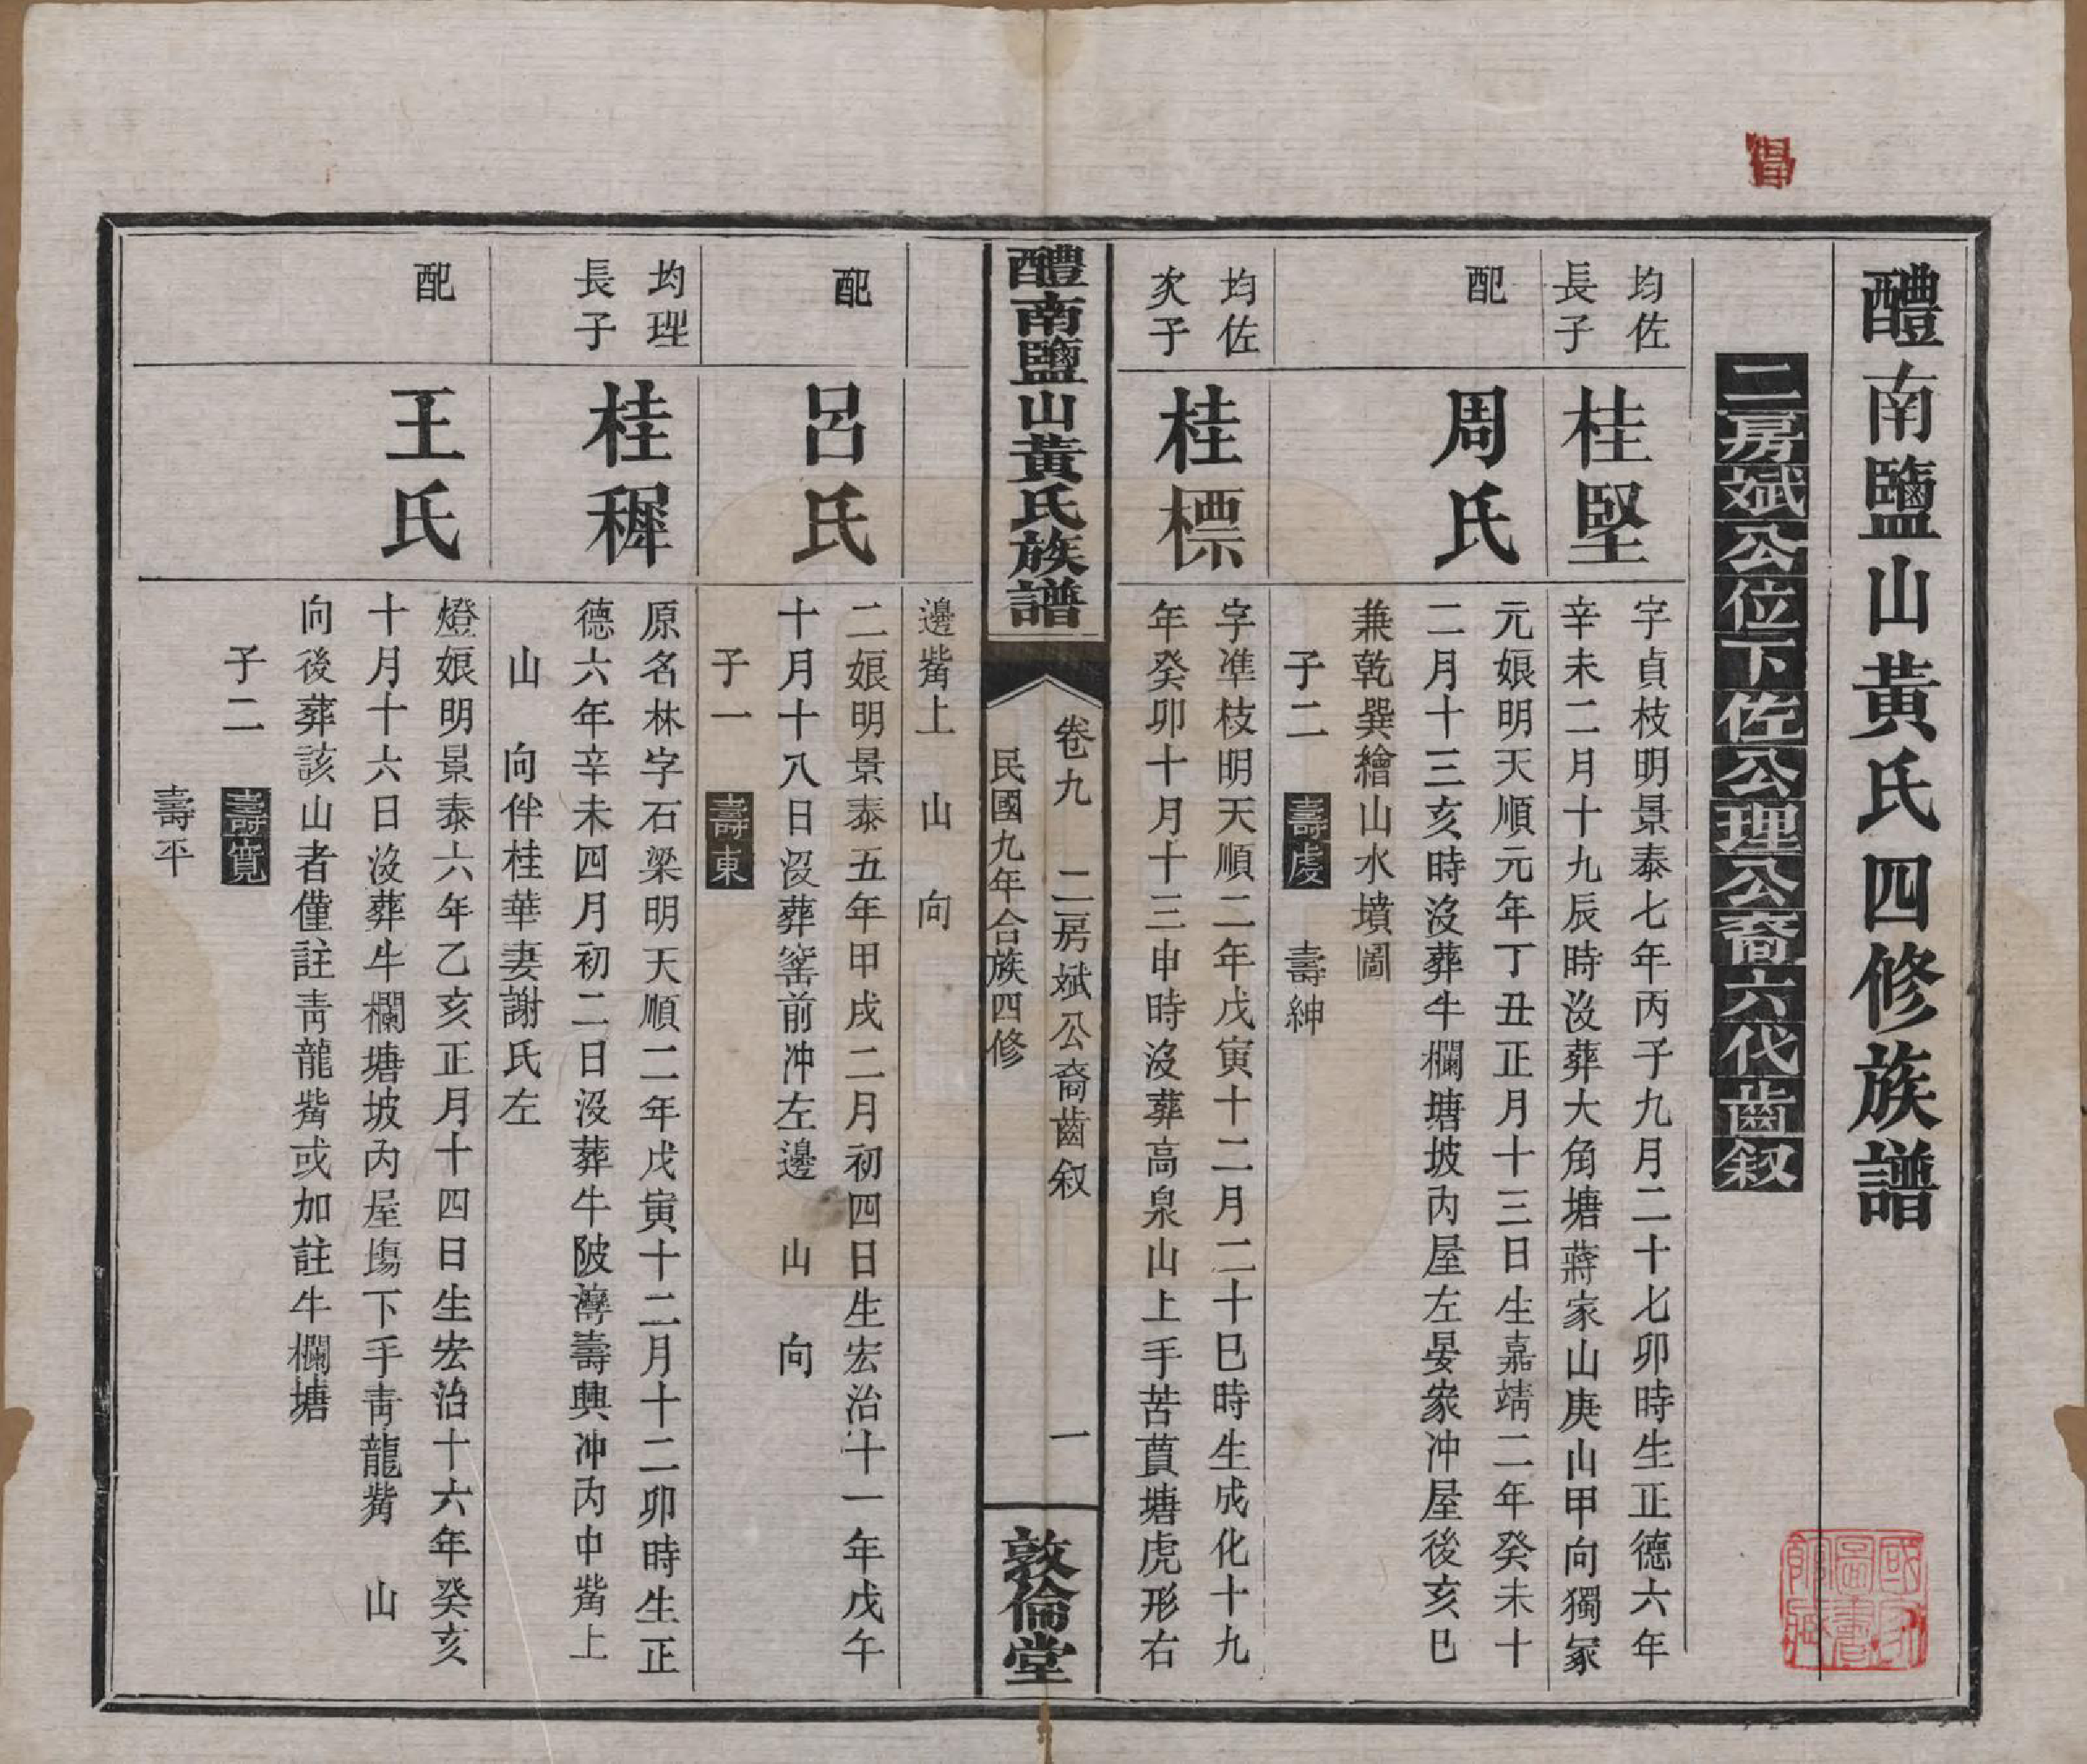 醴南鹽山黃氏四修族譜
二房斌公位下佐公理公裔六代齒叙
均佐
長子
桂堅
字貞枝明景泰七年丙子九月二十七卯時生正德六年
辛未二月十九辰時沒葬大角塘蔣家山庚山甲向獨冢
配
周氏
元娘明天順元年丁丑正月十三日生嘉靖二年癸未十
二月十三亥時沒葬牛欄塘坡內屋左晏家冲屋後亥巳
兼乾巽繪山水墳圖
子二 壽虔 壽紳
均佐
次子
桂標
字準枝明天順二年戊寅十二月二十巳時生成化十九
年癸卯十月十三申時沒葬高泉山上手苦蕒塘虎形右
醴南鹽山黃氏族譜
卷九 二房斌公裔齒叙 一
民國九年合族四修
敦倫堂
邊觜上 山 向
配
呂氏
二娘明景泰五年甲戌二月初四日生宏治十一年戊午
十月十八日沒葬窰前冲左邊 山 向
子一 壽東
均理
長子
桂樨
原名林字石梁明天順二年戊寅十二月十二卯時生正
德六年辛未四月初二日沒葬牛陂灣壽興冲內中觜上
山 向伴桂華妻謝氏左
配
王氏
燈娘明景泰六年乙亥正月十四日生宏治十六年癸亥
十月十六日沒葬牛欄塘坡內屋塲下手靑龍觜 山
向後葬該山者僅註靑龍觜或加註牛欄塘
子二 壽寬
壽平
國家
圖書
館藏